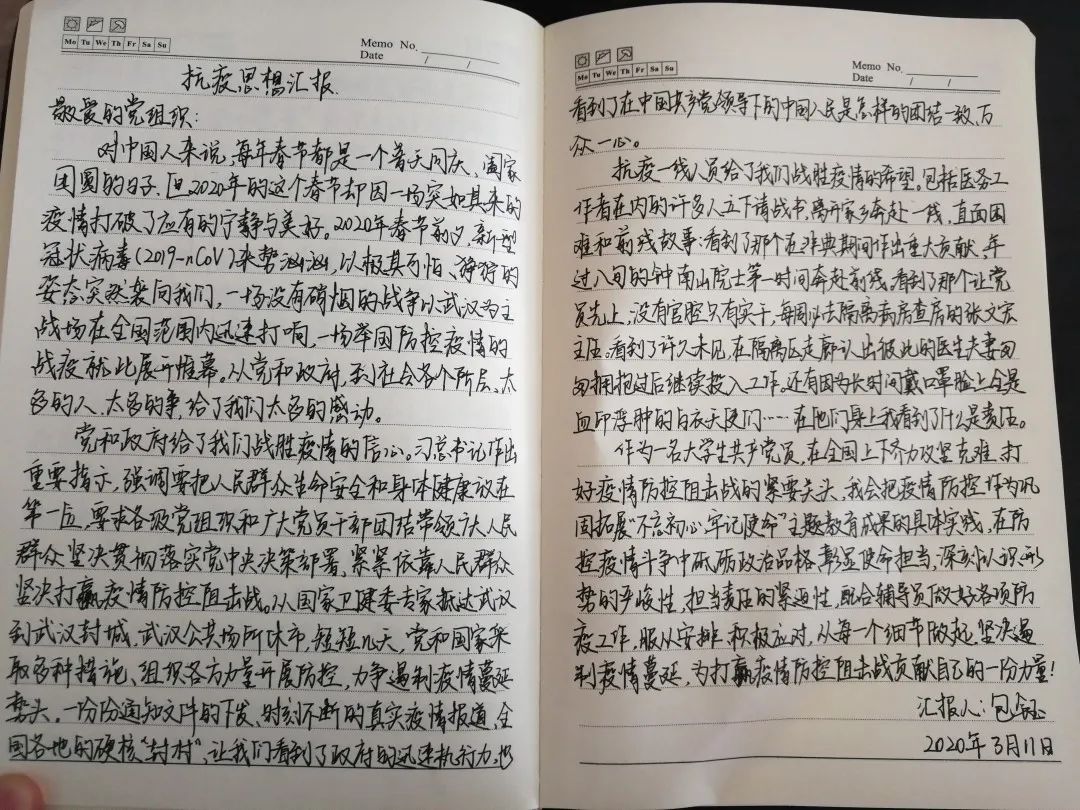 Mo Tu We Th Fr Sa Su
Memo No.
Date / /
抗疫思想汇报.
敬爱的党组织:
对中国人来说,每年春节都是一个普天同庆、阖家
团圆的日子.但2020年的这个春节却因一场突如其来的
疫情打破了应有的宁静与美好。2020年春节前夕,新型
冠状病毒(2019-nCoV)来势汹汹,以极其可怕、狰狞的
姿态突然袭向我们,一场没有硝烟的战争以武汉为主
战场在全国范围内迅速打响,一场举国防控疫情的
战疫就此展开帷幕。从党和政府,到社会各个阶层、太
多的人、太多的事,给了我们太多的感动。
党和政府给了我们战胜疫情的信心。习总书记作出
重要指示,强调要把人民群众生命安全和身体健康放在
第一位,要求各级党组织和广大党员干部团结带领广大人民
群众坚决贯彻落实党中央决策部署,紧紧依靠人民群众
坚决打赢疫情防控阻击战。从国家卫健委专家抵达武汉
到武汉封城、武汉公共场所休市,短短几天,党和国家采
取多种措施、组织各方力量开展防控,力争遏制疫情蔓延
势头。一份份通知文件的下发、时刻不断的真实疫情报道,全
国各地的硬核“封村”,让我们看到了政府的迅速执行力,也
Mo Tu We Th Fr Sa Su
Memo No.
Date / /
看到了在中国共产党领导下的中国人民是怎样的团结一致、万
众一心。
抗疫一线人员给了我们战胜疫情的希望。包括医务工
作者在内的许多人立下请战书,离开家乡奔赴一线,直面困
难和前线故事.看到了那个在非典期间作出重大贡献、年
过八旬的钟南山院士第一时间奔赴前线,看到了那个让党
员先上,没有官腔只有实干,每周必去隔离病房查房的张文宏
主任。看到了许久未见,在隔离区走廊认出彼此的医生夫妻匆
匆拥抱过后继续投入工作,还有因为长时间戴口罩脸上全是
血印浮肿的白衣天使们……在他们身上我看到了什么是责任。
作为一名大学生共产党员,在全国上下齐力攻坚克难、打
好疫情防控阻击战的紧要关头,我会把疫情防控作为巩
固拓展“不忘初心、牢记使命”主题教育成果的具体实践,在防
控疫情斗争中砥砺政治品格,彰显使命担当,深刻认识形
势的严峻性,担当责任的紧迫性,配合辅导员做好各项防
疫工作,服从安排、积极应对,从每一个细节做起,坚决遏
制疫情蔓延,为打赢疫情防控阻击战贡献自己的一份力量!
汇报人:包
2020年3月11日